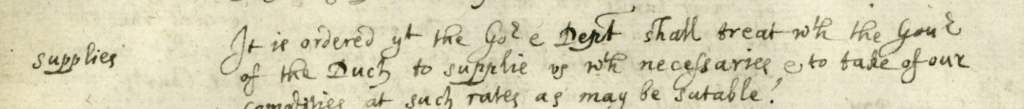 supplies
It is ordered yt the Gor e Dept shall treat wth the Gour
of the Duch to supplie vs wth necessaries & to take of our
comodities at such rates as may be sutable.